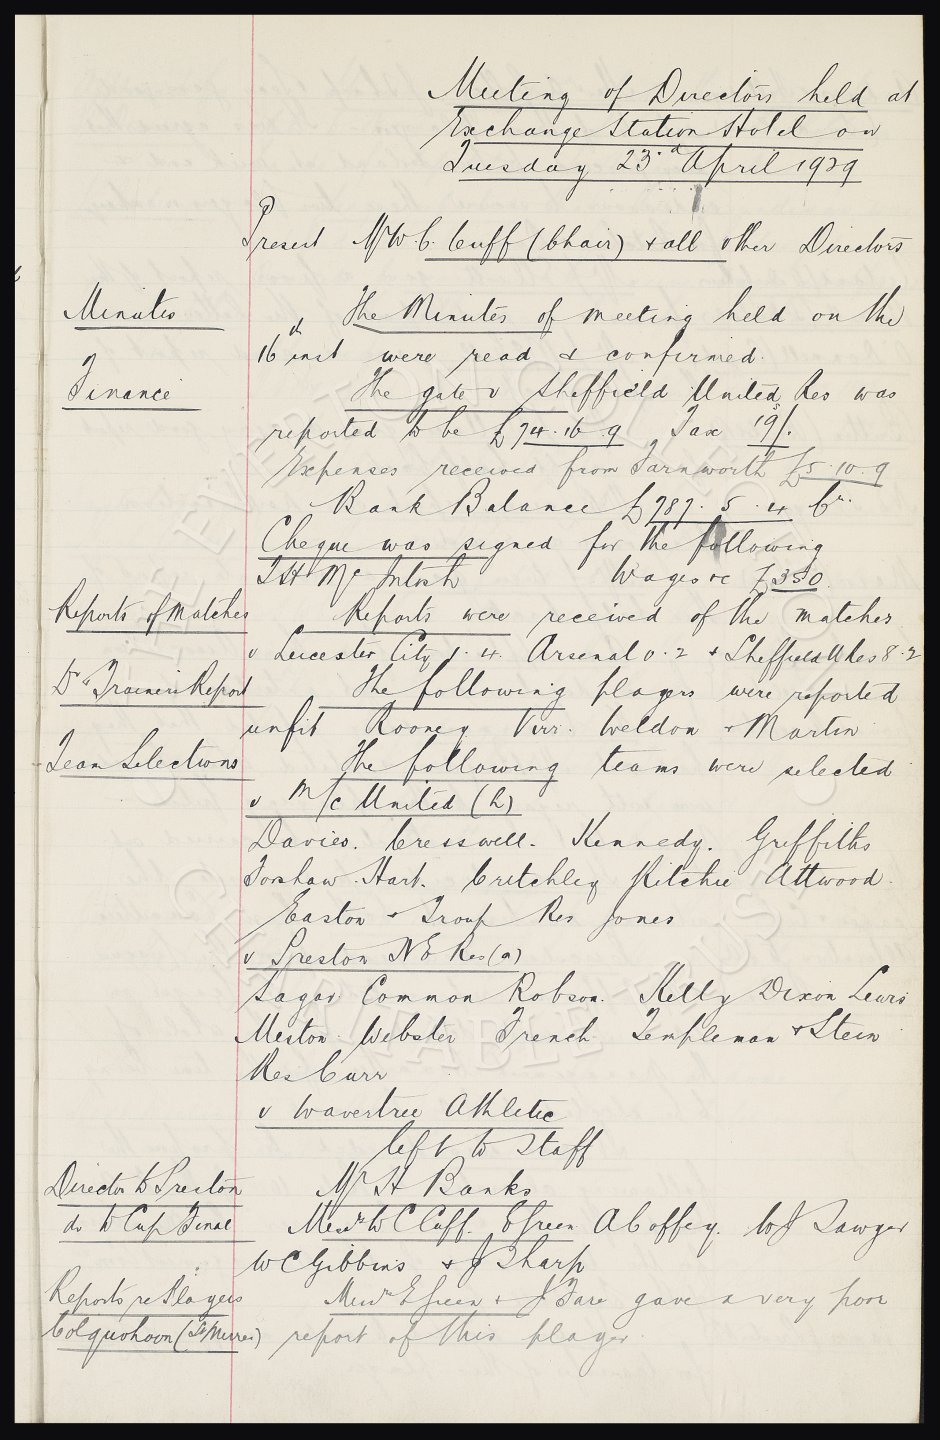 Meeting of Directors held at
Exchange Station Hotel on
Tuesday 23rd April 1929
Present Mr W. C. Cuff (Chair) & all other Directors
Minutes The Minutes of meeting held on the
16th inst were read & confirmed.
Finance The gate v Sheffield United Res was
reported to be £74.16.9 Tax 19s/.
Expenses received from Farnworth £5.10.9
Bank Balance £787.5.4 Cr.
Cheque was signed for the following
T H McIntosh Wages &c £350.
Reports of Matches Reports were received of the matches
v Leicester City 1.4. Arsenal 0.2 & Sheffield U Res 8.2
Dr & Trainers Report The following players were reported
unfit Rooney Virr. Weldon & Martin
Team Selections The following teams were selected
v M/c United (h)
Davies. Cresswell. Kennedy. Griffiths
Forshaw. Hart. Critchley Ritchie Attwood.
Easton & Troup Res Jones
v Preston N E Res (a)
Sagar Common Robson. Kelly Dixon Lewis
Meston. Webster French Templeman & Stein
Res Curr
v Wavertree Athletic
left to Staff
Director to Preston Mr H Banks
do to Cup Final Messrs W C Cuff. E Green A Coffey. W J Sawyer
W C Gibbins & J Sharp
Reports re Players Messrs E Green & J Fare gave a very poor
Colquhoun (St Mirren) report of this player.
THE EVERTON COLLECTION
CHARITABLE TRUST